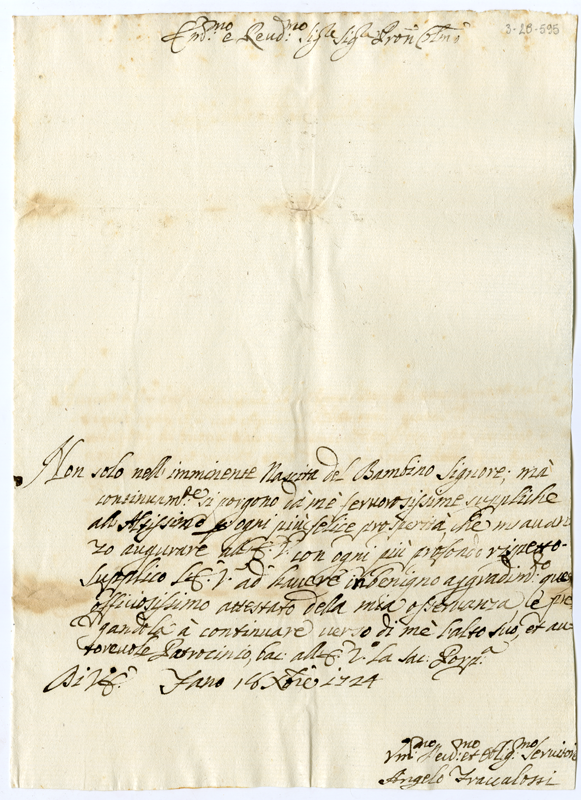 3-28-595
Em.mo e Reud.mo Sig.re Sig.re Pron Col.mo
Non solo nell imminente Nascita del Bambino Signore, mà
continuam.te si porgono dà mè feruorosissime suppliche
all Altissimo p ogni più felice prosperità che m'auan
zo augurare all'E. V. con ogni più profondo rispetto.
Supplico L'E. V. ad hauere in benigno aggradim.to questo
officiosissimo attestato della mia osseruanza, e pre
gandola à continuare uerso di mè l'alto suo, et au
toreuole Patrocinio, bac. all'E. V. la sac. Porp.a
Di V. E. Fano 16 Xbre 1724
Vm.mo Deu.mo et Oblg.mo Seruitore
Angelo